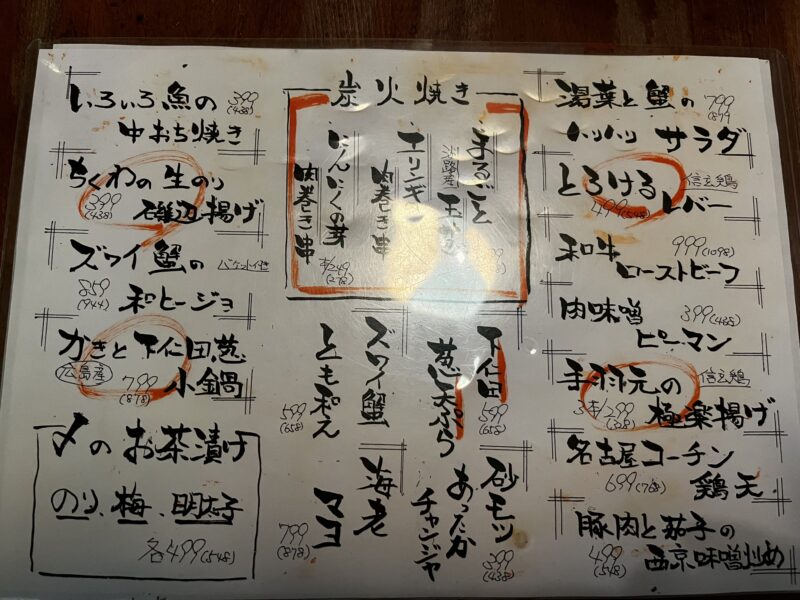 湯葉と蟹の
799
(879)
パリパリ サラダ
とろける
信玄鶏
499(548)
レバー
和牛
999(1098)
ローストビーフ
肉味噌
399(438)
ピーマン
手羽元の
信玄鶏
3本/299
(328)
極楽揚げ
名古屋コーチン
699(768)
鶏天
豚肉と茄子の
499
(548)
西京味噌炒め
炭火焼き
まるごと
淡路産
エリンギ
肉巻き串
にんにくの芽
肉巻き串
本/249
(273)
下仁田
葱天ぷら
599
(658)
ズワイ蟹
とも和え
599
(658)
砂モツ
あったか
チャンジャ
399
(438)
海老
マヨ
799
(878)
いろいろ魚の
399
(438)
中おち焼き
ちくわの生のり
399
(438)
磯辺揚げ
ズワイ蟹の
バケット付き
859
(944)
和ヒージョ
かきと下仁田葱
広島産
799
(878)
小鍋
〆のお茶漬け
のり、梅、明太子
各499(548)